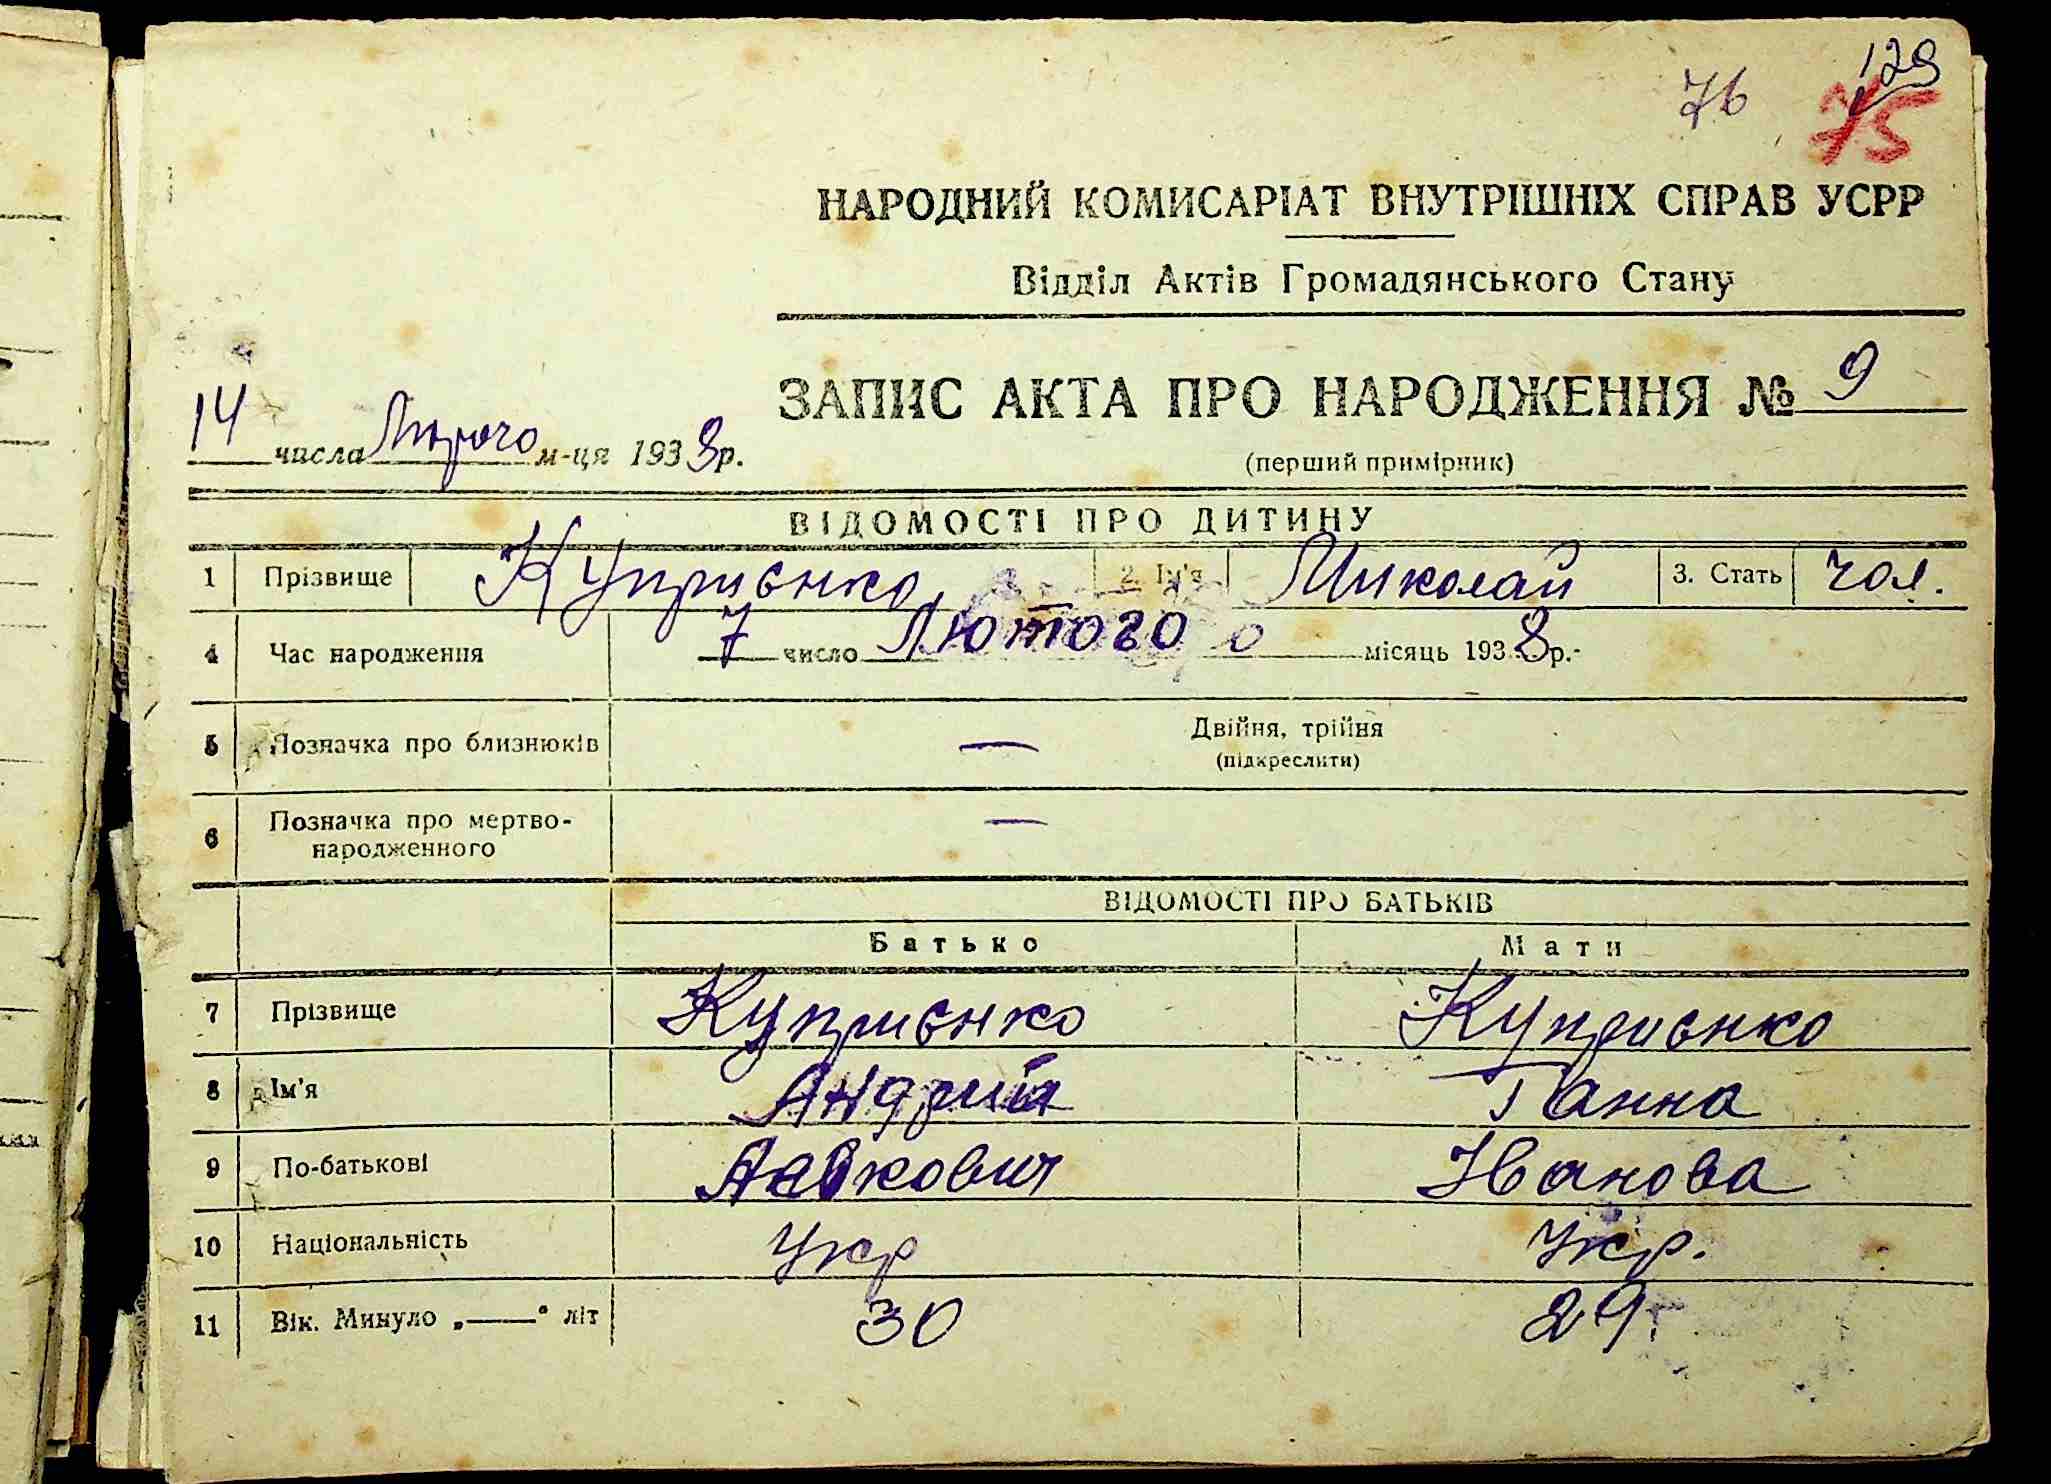 129
76
75
НАРОДНИЙ КОМИСАРІАТ ВНУТРІШНІХ СПРАВ УСРР
Відділ Актів Громадянського Стану
ЗАПИС АКТА ПРО НАРОДЖЕННЯ № 9
14 числа Лютого м-ця 1938 р.
(перший примірник)
ВІДОМОСТІ ПРО ДИТИНУ
1 Прізвище Куприєнко 2. Ім'я Миколай 3. Стать чол.
4 Час народження 7 число Лютого місяць 1938 р.
5 Позначка про близнюків — Двійня, трійня
(підкреслити)
6 Позначка про мертво-
народженного —
ВІДОМОСТІ ПРО БАТЬКІВ
Батько Мати
7 Прізвище Куприєнко Куприєнко
8 Ім'я Андрій Ганна
9 По-батькові Іванова
10 Національність Укр Укр.
11 Вік. Минуло „——" літ 30 29